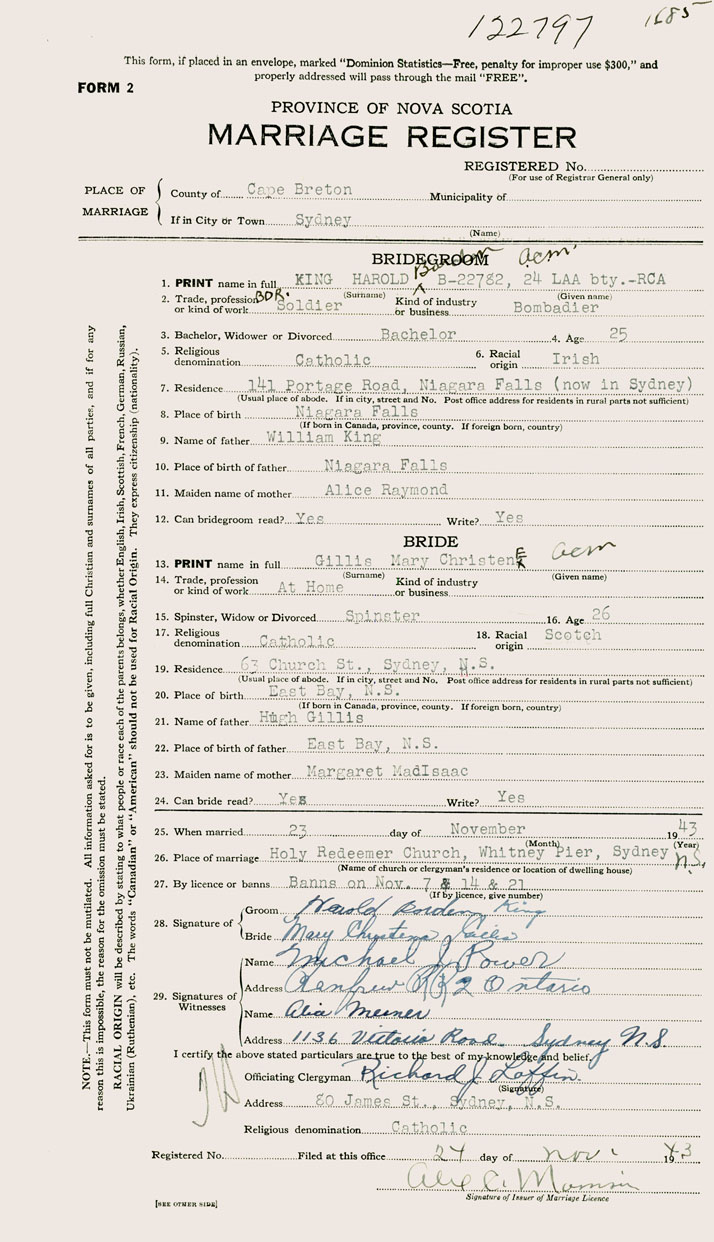 122797 1685
This form, if placed in an envelope, marked "Dominion Statistics—Free, penalty for improper use $300," and
properly addressed will pass through the mail "FREE".
FORM 2
PROVINCE OF NOVA SCOTIA
MARRIAGE REGISTER
REGISTERED No.
(For use of Registrar General only)
PLACE OF MARRIAGE
County of Cape Breton Municipality of
If in City or Town Sydney
(Name)
BRIDEGROOM acm
1. PRINT name in full KING HAROLD Borden B-22782, 24 LAA bty.-RCA
(Surname) (Given name)
2. Trade, profession or kind of work BDR. Soldier Kind of industry or business Bombadier
3. Bachelor, Widower or Divorced Bachelor 4. Age 25
5. Religious denomination Catholic 6. Racial origin Irish
7. Residence 141 Portage Road, Niagara Falls (now in Sydney)
(Usual place of abode. If in city, street and No. Post office address for residents in rural parts not sufficient)
8. Place of birth Niagara Falls
(If born in Canada, province, county. If foreign born, country)
9. Name of father William King
10. Place of birth of father Niagara Falls
11. Maiden name of mother Alice Raymond
12. Can bridegroom read? Yes Write? Yes
BRIDE
13. PRINT name in full Gillis Mary Christene acm
(Surname) (Given name)
14. Trade, profession or kind of work At Home Kind of industry or business
15. Spinster, Widow or Divorced Spinster 16. Age 26
17. Religious denomination Catholic 18. Racial origin Scotch
19. Residence 63 Church St., Sydney, N.S.
(Usual place of abode. If in city, street and No. Post office address for residents in rural parts not sufficient)
20. Place of birth East Bay, N.S.
(If born in Canada, province, county. If foreign born, country)
21. Name of father Hugh Gillis
22. Place of birth of father East Bay, N.S.
23. Maiden name of mother Margaret MadIsaac
24. Can bride read? Yes Write? Yes
25. When married 23 day of November 1943
(Month) (Year)
26. Place of marriage Holy Redeemer Church, Whitney Pier, Sydney N.S.
(Name of church or clergyman's residence or location of dwelling house)
27. By licence or banns Banns on Nov. 7 & 14 & 21
(If by licence, give number)
28. Signature of
Groom Harold Borden King
Bride Mary Christena Gillis
29. Signatures of Witnesses
Name Michael J. Power
Address Renfrew RR2 Ontario
Name
Address 1136 Victoria Road Sydney N.S.
I certify the above stated particulars are true to the best of my knowledge and belief,
Officiating Clergyman Richard J. Laffin.
(Signature)
Address 80 James St., Sydney, N.S.
Religious denomination Catholic
Registered No. Filed at this office 24 day of Nov. 1943
Signature of Issuer of Marriage Licence
[SEE OTHER SIDE]
NOTE.—This form must not be mutilated. All information asked for is to be given, including full Christian and surnames of all parties, and if for any
reason this is impossible, the reason for the omission must be stated.
RACIAL ORIGIN will be described by stating to what people or race each of the parents belongs, whether English, Irish, Scottish, French, German, Russian,
Ukrainian (Ruthenian), etc. The words "Canadian" or "American" should not be used for Racial Origin. They express citizenship (nationality).